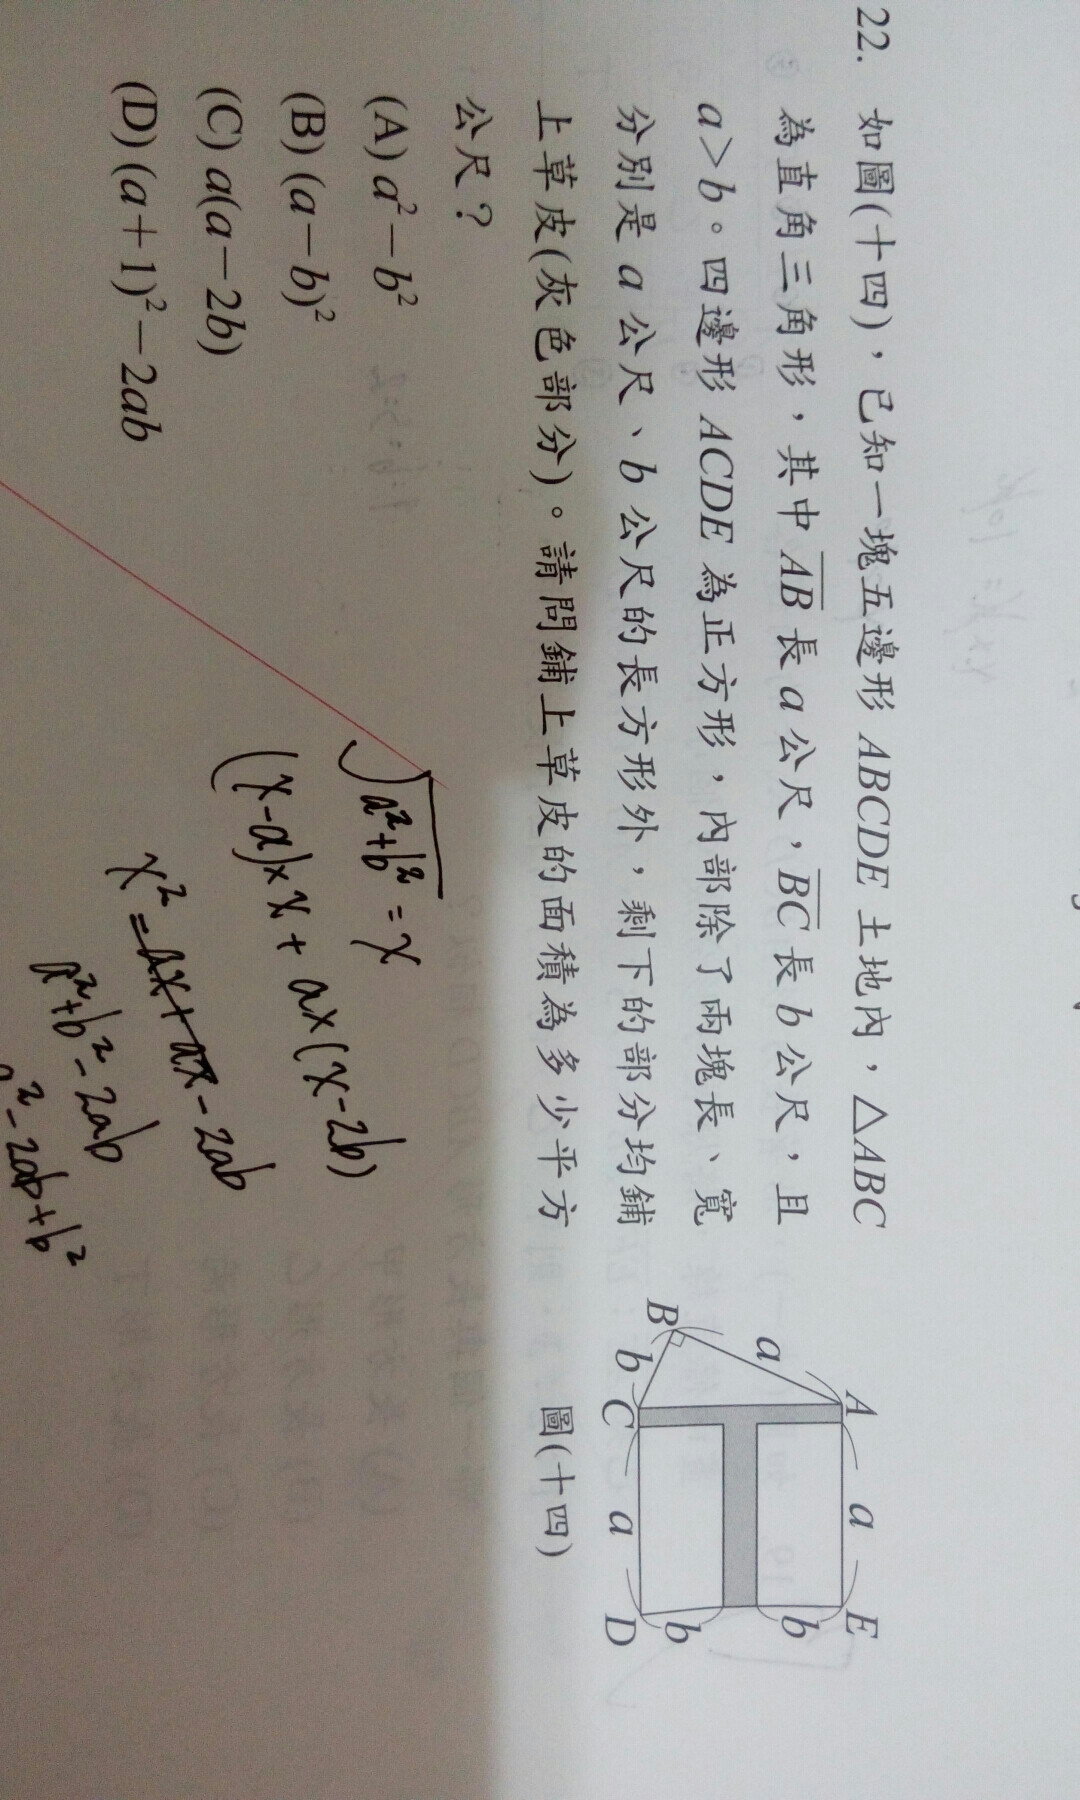 22. 如圖(十四)，已知一塊五邊形 ABCDE 土地內，△ABC
為直角三角形，其中 AB 長 a 公尺，BC 長 b 公尺，且
a＞b。四邊形 ACDE 為正方形，內部除了兩塊長、寬
分別是 a 公尺、b 公尺的長方形外，剩下的部分均鋪
上草皮(灰色部分)。請問鋪上草皮的面積為多少平方
公尺？
(A) a²－b²
(B) (a－b)²
(C) a(a－2b)
(D) (a＋1)²－2ab
A
a
E
B
a
b
b
b
C
a
D
圖(十四)
√a²+b² = x
(x-a)×x + a×(x-2b)
x² = ax + ax - 2ab
a²+b²-2ab
a²-2ab+b²